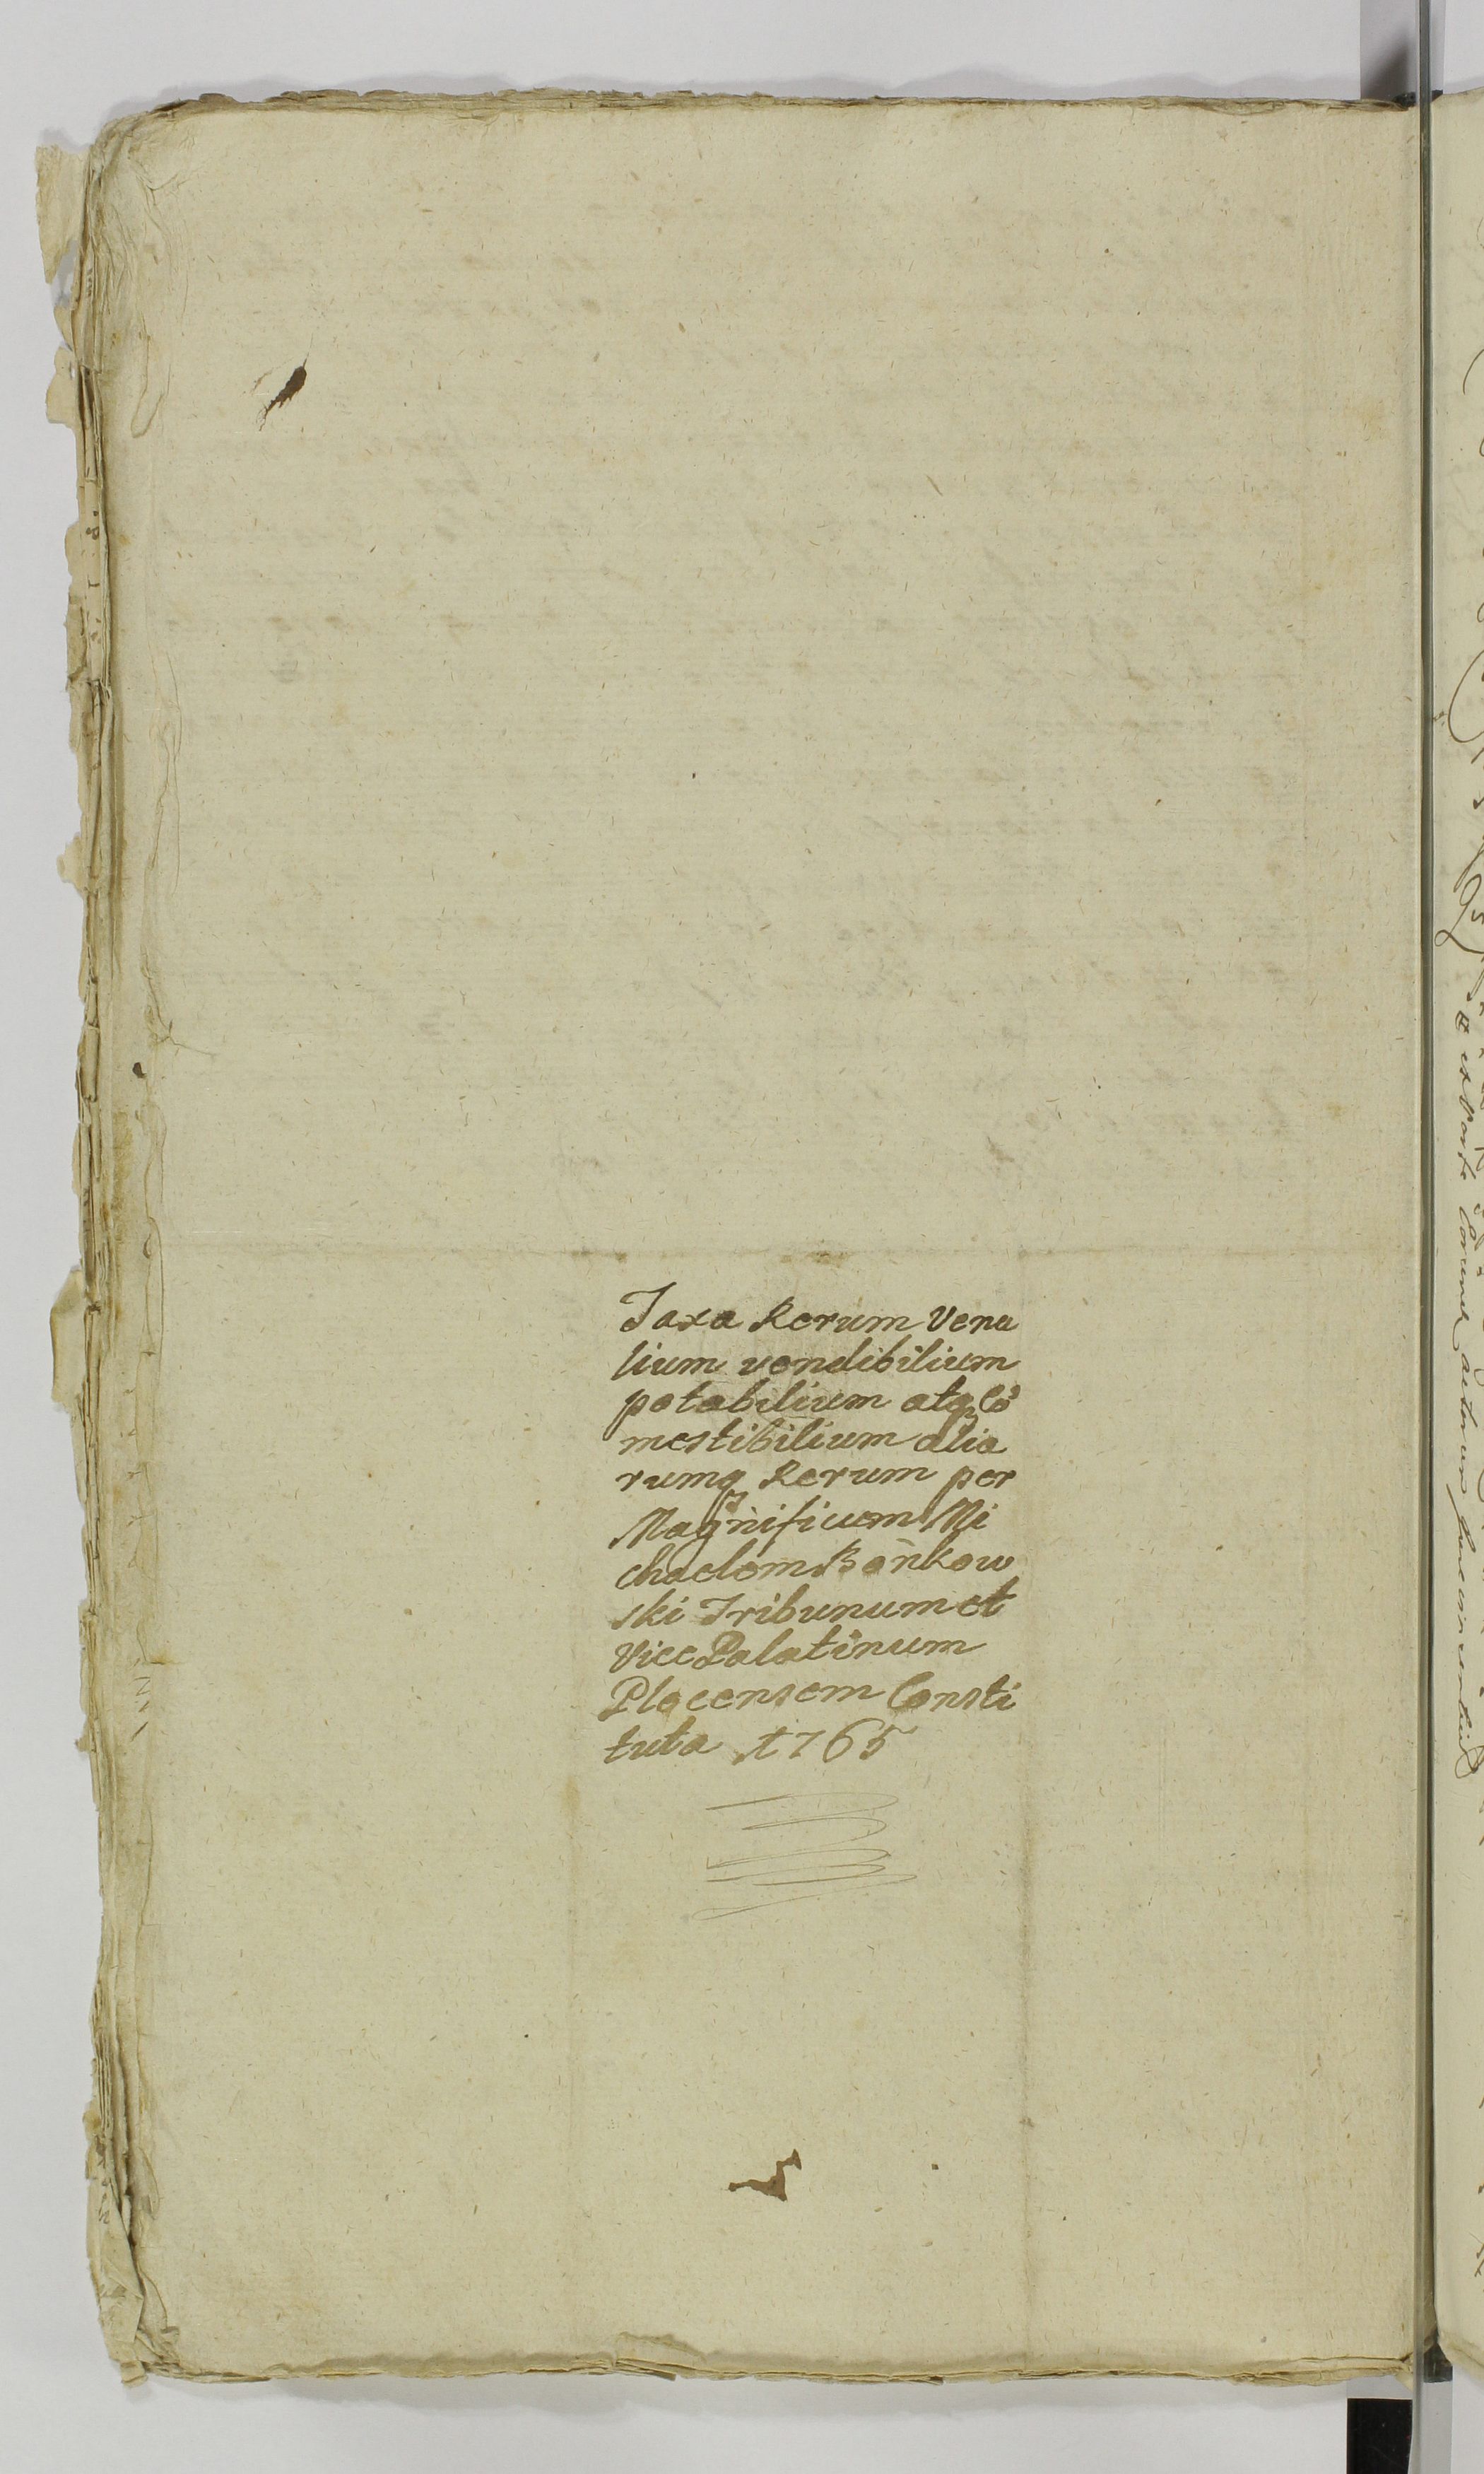 Taxa Rerum Vena
lium vendibilium
potabilium atq Co
mestibilium alia
rumq Rerum per
Magnificum Mi
chaelem Bońkow
ski Tribunum et
Vice Palatinum
Plocensem Consti
tuta 1765
ex parte